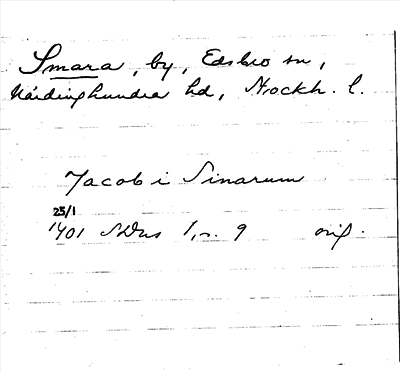 Smara, by, Edsbro sn,
Närdinghundra hd, Stockh. l.
Jacob i Sinarum
25/1
1401 SDns 1, n. 9 orig.